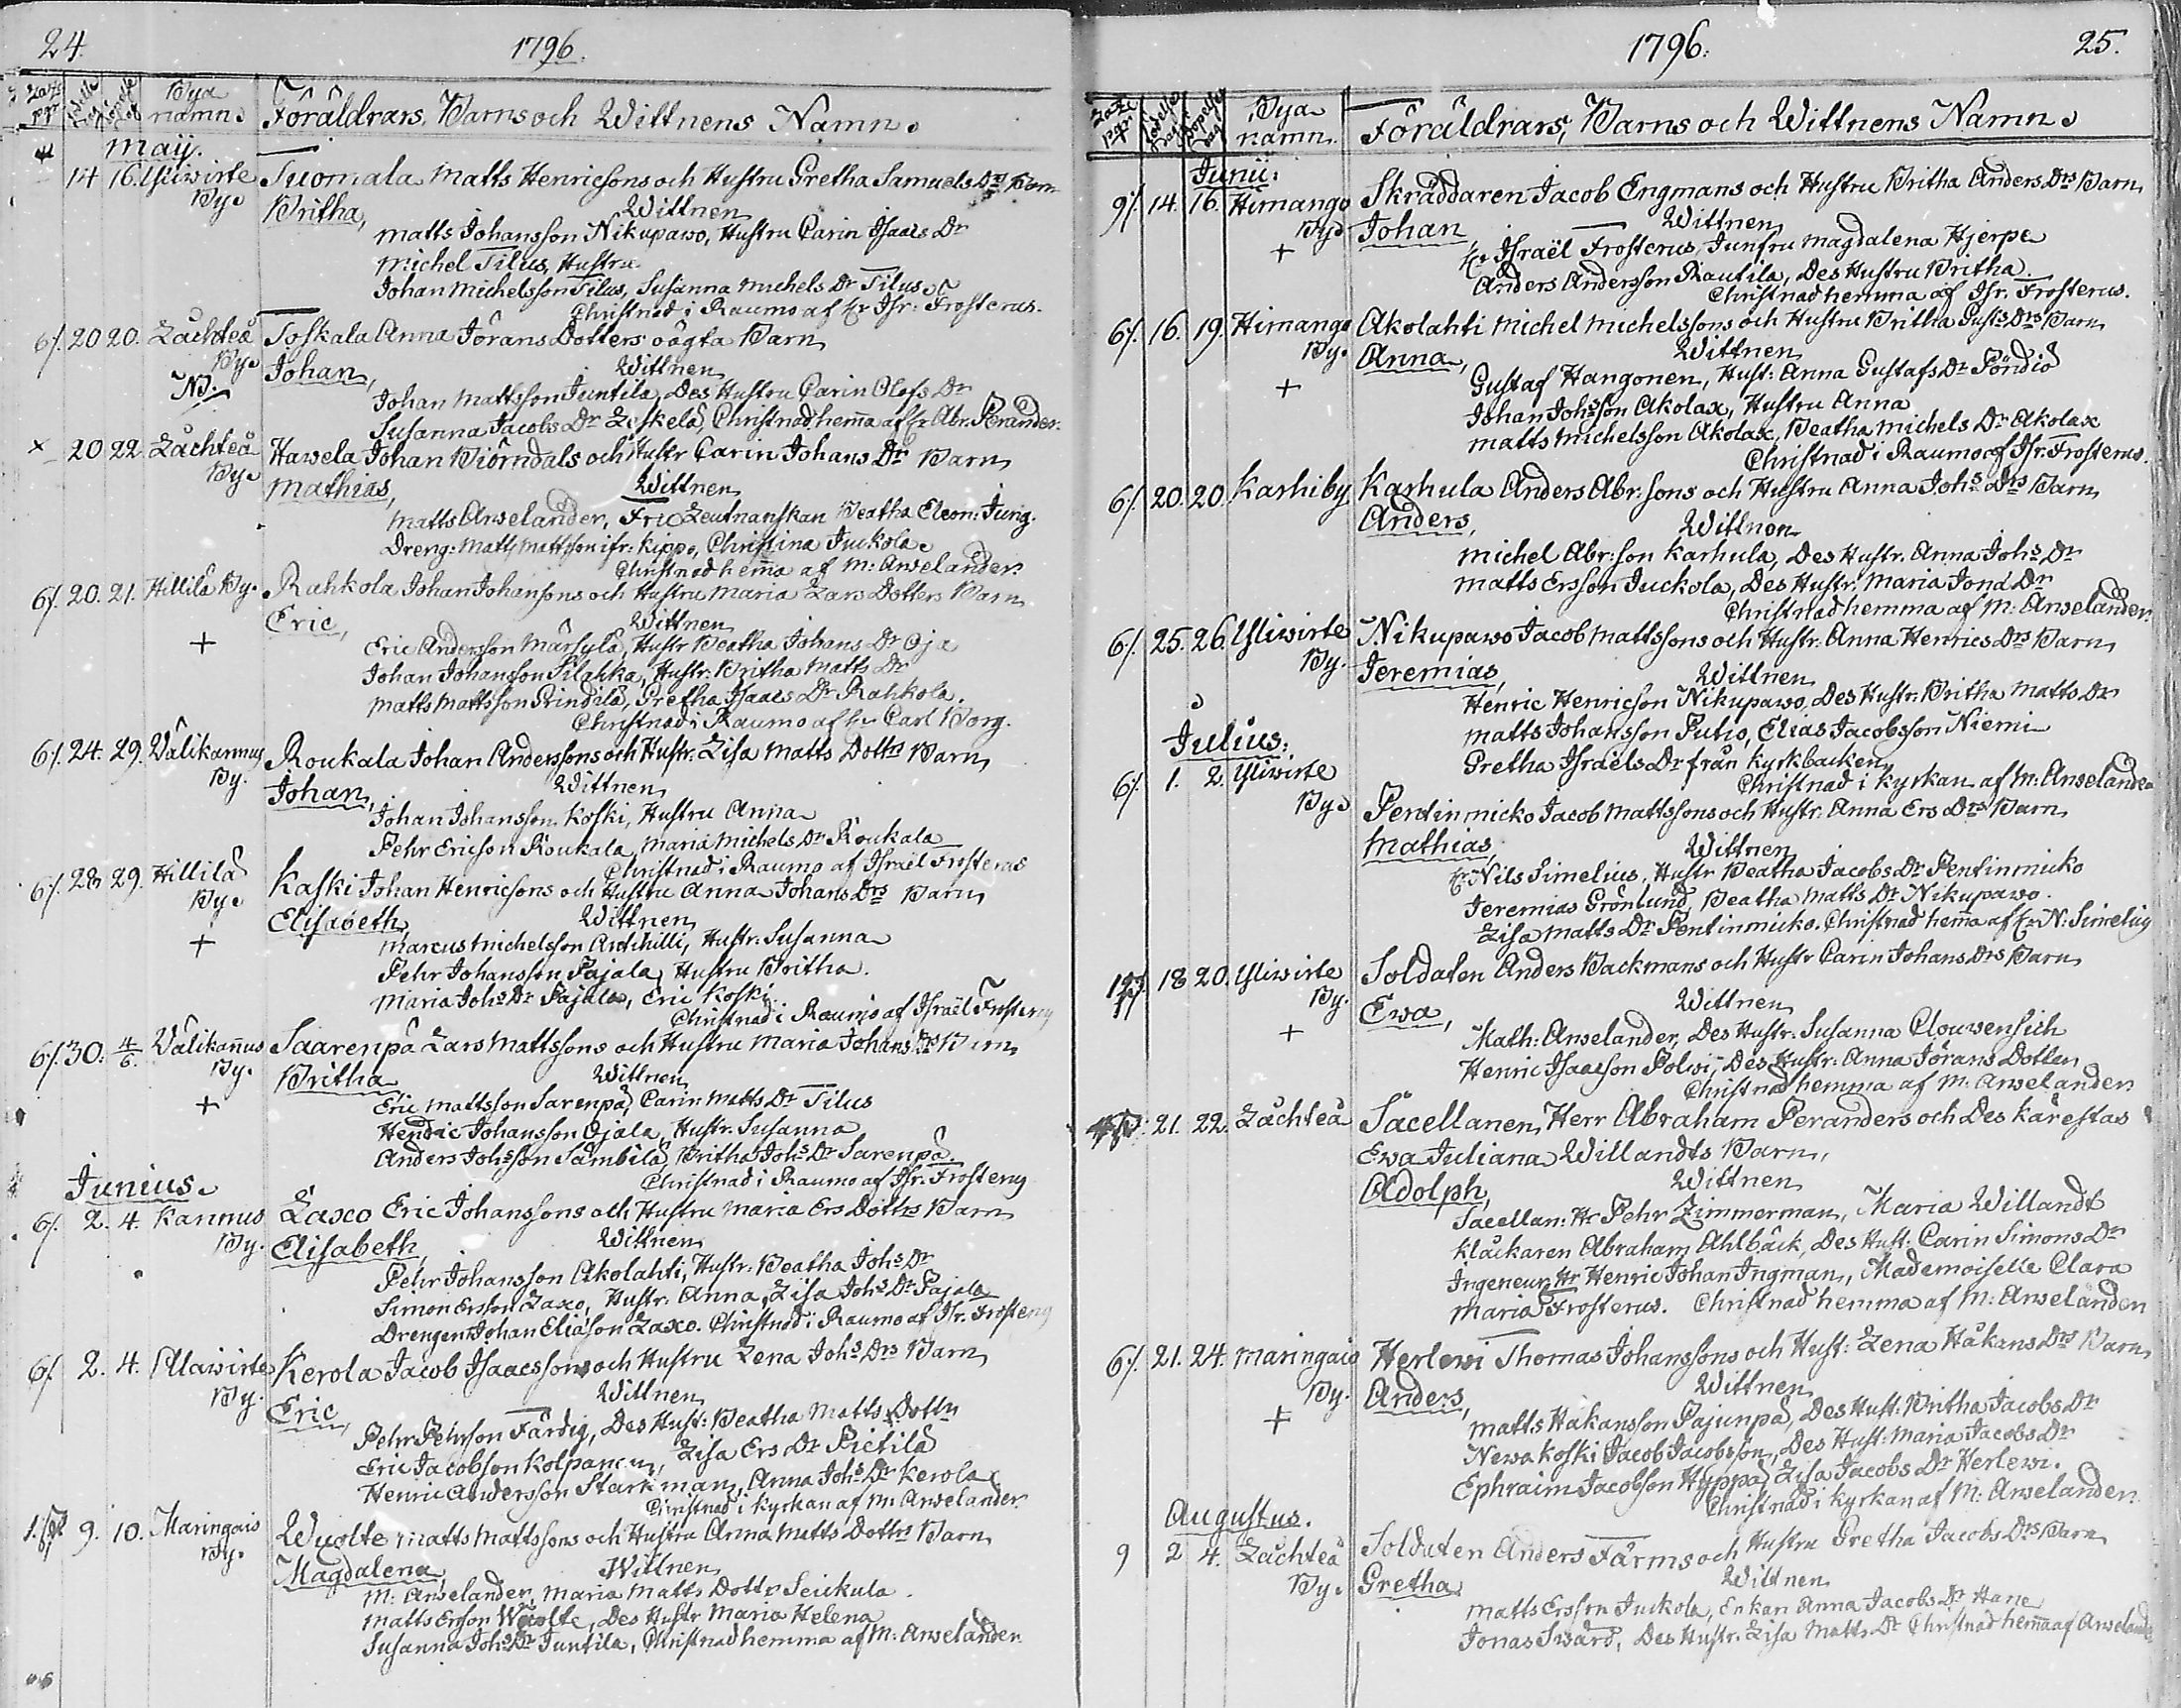 24. 1796.
Födelse dag Bya namn. Föräldrars, Barns och Wittnens Namn.
May.
14 16. Yliwirte Tuomala Matts Henricsons och Hustru Gretha Samuels Drs Barn
By. Britha, Wittnen
Matts Johansson Nikupawo, Hustru Carin Isaacs Dr
Michel Tilus, Hustru
Johan Michelsson Tilus, Susanna Michels Dr Tilus
Christnad i Raumo af Hr Isr: Frosterus.
6/. 20 20. Lachteå Toskala Anna Jörans Dotters oägta Barn
By. Johan, Wittnen
NB. Johan Mattsson Juntila, Des Hustru Carin Olofs Dr
Susanna Jacobs Dr Leskelä, Christnad hem̄a af Hr Abr. Perander.
x 20 22. Lachteå Hawela Johan Biörndals och Hustr Carin Johans Dr Barn
By. Mathias, Wittnen
Matts Anselander, Fru Leutnanskan Beatha Eleon: Jung.
Dreng: Matts Mattsson ifr: Kippo, Christina Juckola.
Christnad hem̄a af M: Anselander.
6/. 20. 21. Hillilä By. Rahkola Johan Johansons och Hustru Maria Lars Dotters Barn
+ Eric, Wittnen
Eric Andersson Märsylä, Hustr Beatha Johans Dr Oja
Johan Johansson Pilahka, Hustr: Britha Matts Dr
Matts Mattsson Prindilä, Gretha Isaacs Dr Rahkola.
Christnad i Raumo af Hr Carl Borg.
6/. 24. 29. Wälikannus Roukala Johan Anderssons och Hustr: Lisa Matts Dottrs Barn
By. Johan, Wittnen
Johan Johansson Koski, Hustru Anna
Pehr Ericson Roukala, Maria Michels Dr Roukala
Christnad i Raumo af Israël Frosterus
6/. 28 29. Hillilä Kaski Johan Henricsons och Hustru Anna Johans Drs Barn
By. Elisabeth, Wittnen
+ Marcus Michelsson Anthilli, Hustr: Susanna
Pehr Johansson Pajala, Hustru Britha.
Maria Johs Dr Pajala, Eric Koski.
Christnad i Raumo af Israël Frosterus
6/. 30. 4/6. Wälikan̄us Saarenpä Lars Mattssons och Hustru Maria Johans Drs Barn
By. Britha Wittnen
+ Eric Mattsson Sarenpä, Carin Matts Dr Tilus
Hendric Johansson Ojala, Hustr. Susanna
Anders Johsson Sämbilä, Britha Johs Dr Sarenpä.
Christnad i Raumo af Isr. Frosterus
Junius.
6/. 2. 4. Kannus Laxo Eric Johanssons och Hustru Maria Ers Dottrs Barn
By. Elisabeth, Wittnen
Pehr Johansson Akolahti, Hustr: Beatha Johs Dr
Simon Ersson Laxo, Hustr: Anna, Lisa Johs Dr Pajala
Drengen Johan Eliasson Laxo. Christnad i Raumo af Isr. Frosterus
6/. 2. 4. Alawirte Kerola Jacob Isaacssons och Hustru Lena Johs Drs Barn
By. Eric, Wittnen
Pehr Pehrson Färdig, Des Hust: Beatha Matts Dottr
Eric Jacobson Kolpanen, Lisa Ers Dr Pietilä
Henric Andersson Starkman, Anna Johs Dr Kerola
Christnad i Kyrkan af M: Anselander.
9. 10. Maringais Wuolte Matts Mattssons och Hustru Anna Matts Dottrs Barn
By. Magdalena, Wittnen
M: Anselander, Maria Matts Dottr Seickula.
Matts Erson Wuolte, Des Hustr Maria Helena
Susanna Johs Dr Juntila, Christnad hemma af M: Anselander.
1796. 25.
Födelse dag Bya namn. Föräldrars, Barns och Wittnens Namn.
Junii.
9/. 14. 16. Himango Skräddaren Jacob Engmans och Hustru Britha Anders Drs Barn
By. Johan Wittnen
+ Hr Israël Frosterus, Junfru Magdalena Hjerpe
Anders Andersson Rautila, Des Hustru Britha.
Christnad hemma af Isr. Frosterus.
6/. 16. 19. Himango Akolahti Michel Michelssons och Hustru Britha Gusts Drs Barn
By. Anna, Wittnen
+ Gustaf Hangonen, Hust: Anna Gustafs Dr Pöndiö
Johan Johsson Akolax, Hustru Anna
Matts Michelsson Akolax, Beatha Michels Dr Akolax
Christnad i Raumo af Isr. Frosterus.
6/. 20. 20. Karhi by Karhula Anders Abr:sons och Hustru Anna Johs Drs Barn
Anders, Wittnen
Michel Abr:son Karhula, Des Hustr. Anna Johs Dr
Matts Ersson Juckola, Des Hustr. Maria Jonæ Dr
Christnad hemma af M: Anselander.
6/. 25. 26. Yliwirte Nikupawo Jacob Mattssons och Hustr: Anna Henrics Drs Barn
By. Jeremias, Wittnen
Henric Henricson Nikupawo, Des Hustr: Britha Matts Dr
Matts Johansson Putio, Elias Jacobsson Niemi
Gretha Israëls Dr från Kyrkbacken
Christnad i kyrkan af M: Anselander
Julius.
6/. 1. 2. Yliwirte
By. Pentinmicko Jacob Mattssons och Hustr: Anna Ers Drs Barn
Mathias, Wittnen
Hr Nils Simelius, Hustr Beatha Jacobs Dr Pentinmicko
Jeremias Grönlund, Beatha Matts Dr Nikupawo.
Lisa Matts Dr Pentinmicko. Christnad hem̄a af Hr N: Simelius
18 20. Yliwirte Soldaten Anders Backmans och Hustr Carin Johans Drs Barn
By. Ewa, Wittnen
+ Math: Anselander, Des Hustr: Susanna Clouwensich
Henric Isaacson Polwi, Des Hustr: Anna Jörans Dotter
Christnad hemma af M: Anselander
21. 22. Lachteå Sacellanen Herr Abraham Peranders och Des Kärestas
Ewa Juliana Willandts Barn,
Adolph, Wittnen
Sacellan: Hr Pehr Zimmerman, Maria Willandt
Klåckaren Abraham Ahlbäck, Des Hust: Carin Simons Dr
Ingeneur Hr Henric Johan Ingman, Mademoiselle Clara
Maria Frosterus. Christnad hemma af M: Anselander
6/. 21. 24. Maringais Herlewi Thomas Johanssons och Hust: Lena Håkans Drs Barn
By. Anders, Wittnen
+ Matts Hakansson Pajunpä, Des Hust. Britha Jacobs Dr
Newakoski Jacob Jacobsson, Des Hust: Maria Jacobs Dr
Ephraim Jacobson Hyppä, Lisa Jacobs Dr Herlewi.
Christnad i kyrkan af M: Anselander.
Augustus.
9 2 4. Lachteå Soldaten Anders Färms och Hustru Gretha Jacobs Drs Barn
By. Gretha, Wittnen
Matts Ersson Juckola, Enkan Anna Jacobs Dr Hane
Jonas Swärd, Des Hustr. Lisa Matts Dr Christnad hem̄a af Anselander